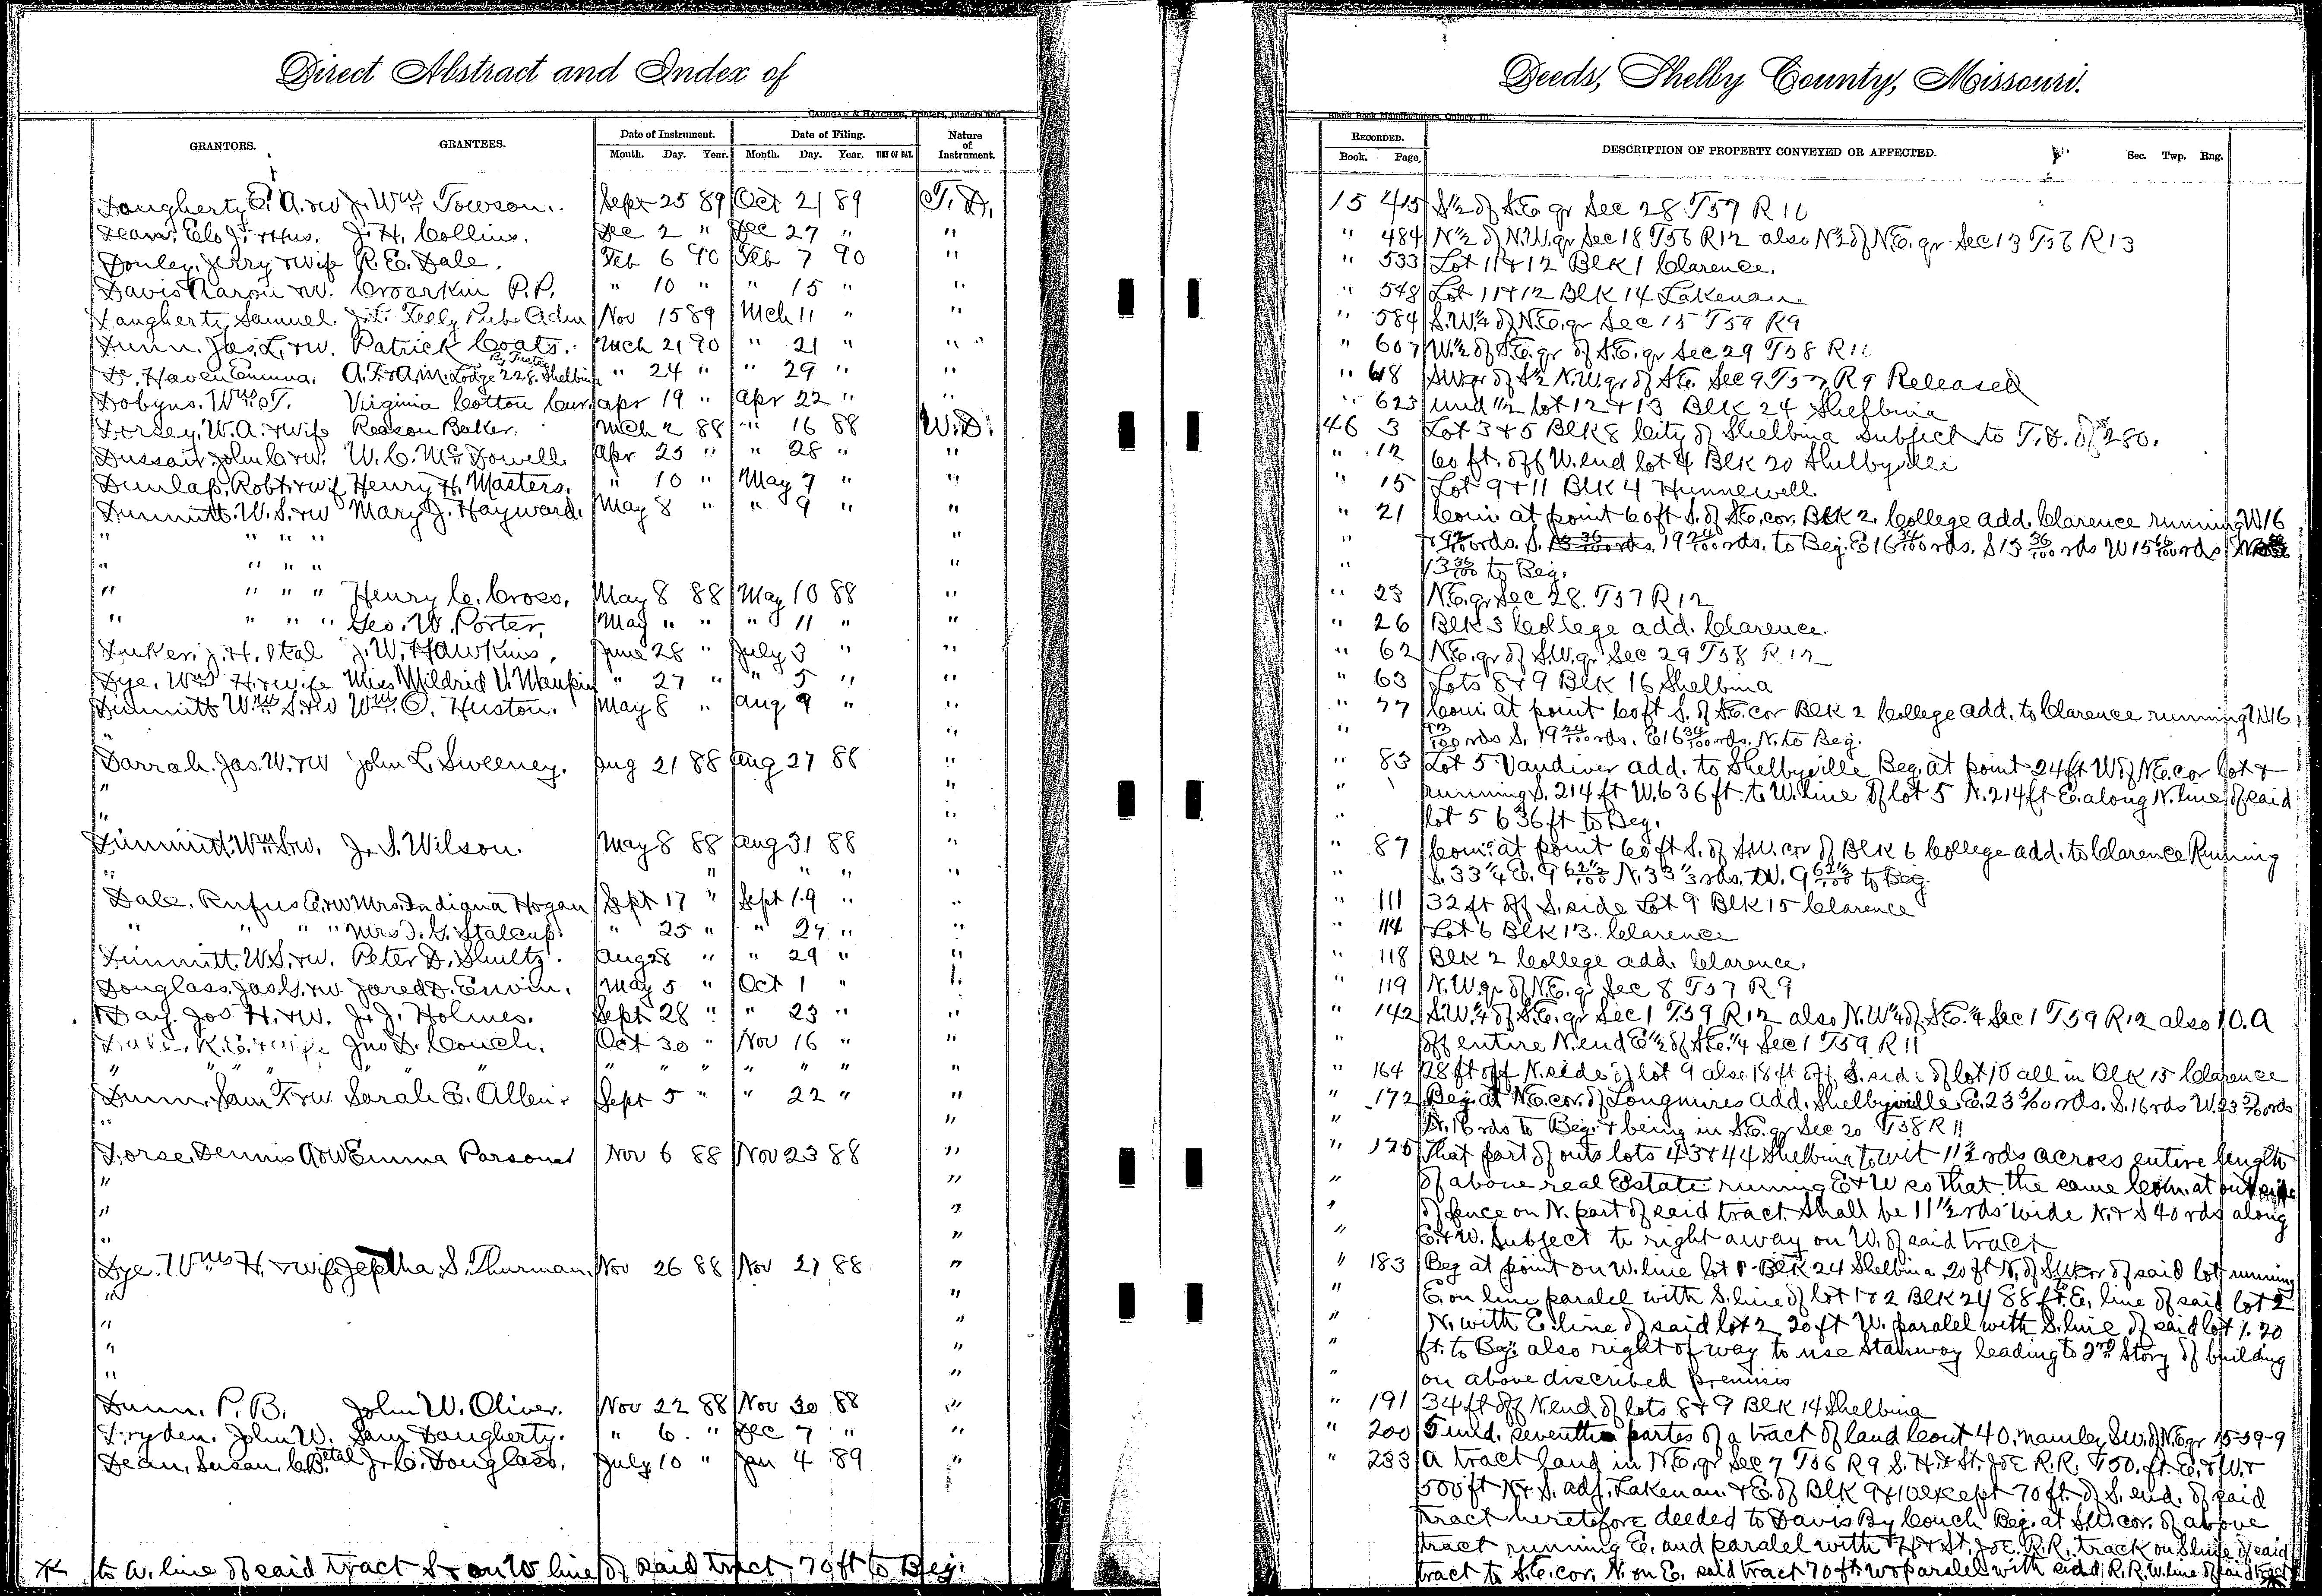 Direct Abstract and Index of
Deeds, Shelby County, Missouri.
CADOGAN & HATCHER, Printers, Binders and
Blank Book Manufacturers, Quincy, Ill.
GRANTORS. GRANTEES. Date of Instrument. Date of Filing. Nature of Instrument. RECORDED. DESCRIPTION OF PROPERTY CONVEYED OR AFFECTED. Sec. Twp. Rng.
Month. Day. Year. Month. Day. Year. TIME OF DAY. Book. Page.
Daugherty E. A. & w J. Wm Towson. Sept 25 89 Oct 21 89 T. D. 15 415 S½ of S.E. qr Sec 28 T57 R10
Dean, Elo J. & Hus. J. H. Collins. Dec 2 " Dec 27 " " " 484 N½ of N.W. qr Sec 18 T56 R12 also N½ of N.E. qr Sec 13 T56 R13
Donley, Jerry & wife R. E. Dale. Feb 6 90 Feb 7 90 " " 533 Lot 11 & 12 Blk 1 Clarence.
Davis Aaron & w. Croarkin P. P. " 10 " " 15 " " " 548 Lot 11 & 12 Blk 14 Lakenan
Daugherty, Samuel. Pub. Adm Nov 15 89 Mch 11 " " " 584 S.W.¼ of N.E. qr Sec 15 T59 R9
Dunn, Jas. L. & w. Patrick Coats. Mch 21 90 " 21 " " " 607 W.½ of S.E. qr of S.E. qr Sec 29 T58 R11
De Haven Emma. A.F. & A.M. Lodge 228. Shelbina By Trustees " 24 " " 29 " " " 618 SW qr of S½ N.W. qr of S.E. Sec 9 T57 R9 Released
Dobyns, Wm T. Virginia Cotton Cur. Apr 19 " Apr 22 " " " 623 und ½ lot 12 & 13 Blk 24 Shelbina
Dorsey, W. A. & wife Reason Baker. Mch 2 88 " 16 88 W. D. 46 3 Lot 3 & 5 Blk 8 City of Shelbina Subject to T. D. of $280.
Dussair, John C. & w. W. C. McDowell Apr 25 " " 28 " " " 12 60 ft. off W. end lot 4 Blk 20 Shelbyville
Dunlap, Robt. & wif Henry H. Masters. " 10 " May 7 " " " 15 Lot 9 & 11 Blk 4 Hunnewell
Dimmitt W. S. & w Mary J. Hayward. May 8 " " 9 " " " 21 Com. at point 60 ft S. of S.E. cor. Blk 2. College add. Clarence running W 16
" " " " " " & 92/100 rds. S. 19 24/100 rds. to Beg. E 16 34/100 rds. S 13 36/100 rds W 15 rds N
" " " " " " 13 36/100 to Beg.
" " " " Henry C. Cross. May 8 88 May 10 88 " " 23 N.E. qr Sec 28. T57 R12
" " " " Geo. W. Porter. May " " " 11 " " " 26 Blk 3 College add. Clarence.
Duker, J. H. et al J. W. Hawkins. June 28 " July 3 " " " 62 N.E. qr of S.W. qr Sec 29 T58 R12
Dye, Wm H. & wife Miss Mildrid V. Maupin " 27 " " 5 " " " 63 Lots 8 & 9 Blk 16 Shelbina
Dimmitt Wm S. & w Wm. O. Huston. May 8 " Aug 9 " " " 77 Com. at point 60 ft S. of S.E. cor Blk 2 College add. to Clarence running W 16
" " " 92/100 rds S. 19 24/100 rds. E 16 34/100 rds. N. to Beg.
Darrah. Jas. W. & w John L. Sweeney. Aug 21 88 Aug 27 88 " " 83 Lot 5 Vandiver add. to Shelbyville Beg. at point 24 ft W. of N.E. cor lot &
" " " running S. 214 ft W. 636 ft. to W. line of lot 5 N. 214 ft E. along N. line of said
" " " lot 5 636 ft to Beg.
Dimmitt, Wm S. & w. J. S. Wilson. May 8 88 Aug 31 88 " " 87 Com. at point 60 ft S. of S.W. cor of Blk 6 College add. to Clarence Running
" " " " " " S. 33¼ E. 9 62½/100 N. 33⅓ rds. W. 9 62½/100 to Beg.
Dale. Rufus E. & w Mrs. Indiana Hogan Sept 17 " Sept 19 " " " 111 32 ft off S. side Lot 9 Blk 15 Clarence
" " " Mrs. Stalcup. " 25 " " 27 " " " 114 Lot 6 Blk 13. Clarence
Dimmitt W. S. & w. Peter D. Shultz. Aug 28 " " 29 " " " 118 Blk 2 College add. Clarence.
Douglass, Jas. G. & w Jared D. Ervin. May 5 " Oct 1 " " " 119 N.W. qr of N.E. qr Sec 8 T57 R9
Day. Jos H. & w. J. J. Holmes. Sept 28 " " 23 " " " 142 S.W.¼ of S.E. qr Sec 1 T59 R12 also N.W¼ of S.E.¼ Sec 1 T59 R12 also 10. A
off entire N. end E½ of S.E.¼ Sec 1 T59 R11
Dale, R. E. & wife Jno D. Couch. Oct 30 " Nov 16 " " " 164 28 ft off N. side of lot 9 also 18 ft off S. side of lot 10 all in Blk 15 Clarence
Dunn, Sam F. & w Sarah E. Allen. Sept 5 " " 22 " " " 172 Beg. at N.E. cor. of Longmires add. Shelbyville E. 23 rds. S. 16 rds W. 23 rds
" " " N. 16 rds to Beg. & being in S.E. qr Sec 20 T58 R11
Dorse, Dennis A & w Emma Parsons Nov 6 88 Nov 23 88 " " 175 That part of outs lots 43 & 44 Shelbina to wit 11½ rds across entire length
" " " of above real Estate runing E & W so that the same Com. at out side
" " " of fence on N. part of said tract Shall be 11½ rds wide N. & S 40 rds along
" " " E. & W. Subject to right away on W. of said tract
Dye. Wm H. & wife Jeptha. S. Thurman. Nov 26 88 Nov 27 88. " " 183 Beg at point on W. line lot 1 Blk 24 Shelbina 20 ft N. of S.W. cor of said lot running
" " " E. on line paralel with S. line of lot 1 & 2 Blk 24 88 ft. to E. line of said lot 2
" " " N. with E. line of said lot 2 20 ft W. paralel with S. line of said lot 1. 20
" " " ft. to Beg. also right of way to use stairway leading to 2nd Story of building
" " " on above discribed premisis
Dunn. P. B. John W. Oliver. Nov 22 88 Nov 30 88 " " 191 34 ft off N. end of lots 8 & 9 Blk 14 Shelbina
Dryden. John W. Sam Daugherty. " 6. " Dec 7 " " " 200 5 und. sevenths partes of a tract of land Cont 40. namley S.W. of N.E. qr 15-59-9
Dean, Susan. C. B. et al J. C. Douglass. July 10 " Jan 4 89 " " 233 A tract land in N.E. qr Sec 7 T56 R9 S. H. & St. Joe R.R. 750. ft. E. & W. &
500 ft N & S. adj. Lakenan & E. of Blk 9 & 10 except 70 ft. of S. end. of said
tract heretofore deeded to Davis By Couch Beg. at S.W. cor. of above
tract running E. and paralel with H & St. Joe. R.R. track on S line of said
tract to S.E. cor. N. on E. said tract 70 ft. W paralel with said R.R. W. line of said tract
* to W. line of said tract S & on W line of said tract 70 ft to Beg.